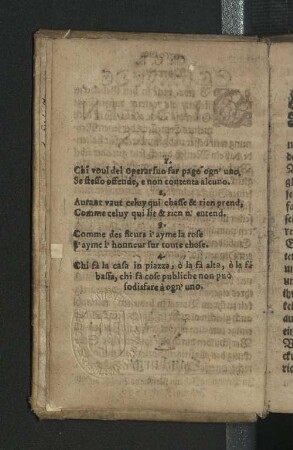 1.
Chi voul del operar suo far pago ogn' uno,
Se stesso offende, e non contenta alcuno.
2.
Autant vaut celuy qui chasse & rien prend,
Comme celuy qui lie & rien n' entend.
3.
Comme des fleurs i'ayme la rose
I'ayme l' honneur sur toute chose.
4.
Chi fà la casa in piazza, ò la fà alta, ò la fà
bassa, chi fà cose publiche non può
sodisfare à ogn' uno.